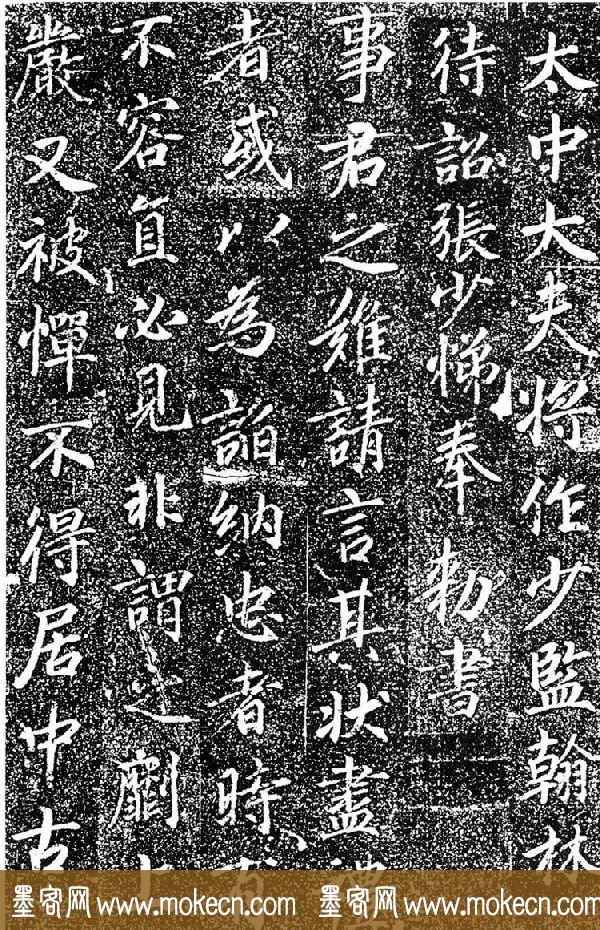 太中大夫將作少監翰林
待詔張少悌奉 勑書
事君之難請言其狀盡禮
者或以為諂納忠者時有
不容直必見非謂之劘上
嚴又被憚不得居中古
墨客网 www.mokecn.com 墨客网 www.mokecn.com